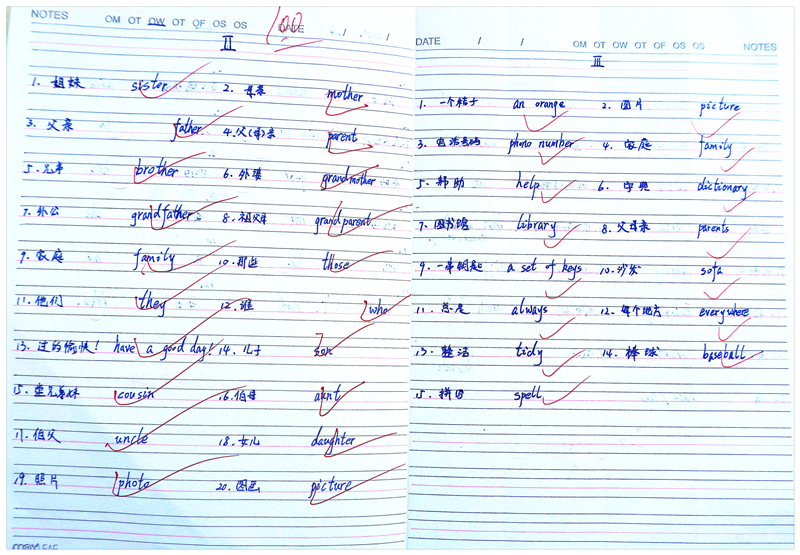 NOTES OM OT OW OT OF OS OS DATE / /
100
II
1. 姐妹 sister 2. 母亲 mother
3. 父亲 father 4. 父(母)亲 parent
5. 兄弟 brother 6. 外婆 grandmother
7. 外公 grandfather 8. 祖父母 grandparent
9. 家庭 family 10. 那些 those
11. 他们 they 12. 谁 who
13. 过的愉快! have a good day! 14. 儿子 son
15. 堂兄弟妹 cousin 16. 伯母 aunt
17. 伯父 uncle 18. 女儿 daughter
19. 照片 photo 20. 图画 picture
DATE / / OM OT OW OT OF OS OS NOTES
III
1. 一个桔子 an orange 2. 图片 picture
3. 电话号码 phone number 4. 家庭 family
5. 帮助 help 6. 字典 dictionary
7. 图书馆 library 8. 父母亲 parents
9. 一串钥匙 a set of keys 10. 沙发 sofa
11. 总是 always 12. 每个地方 everywhere
13. 整洁 tidy 14. 棒球 baseball
15. 拼写 spell